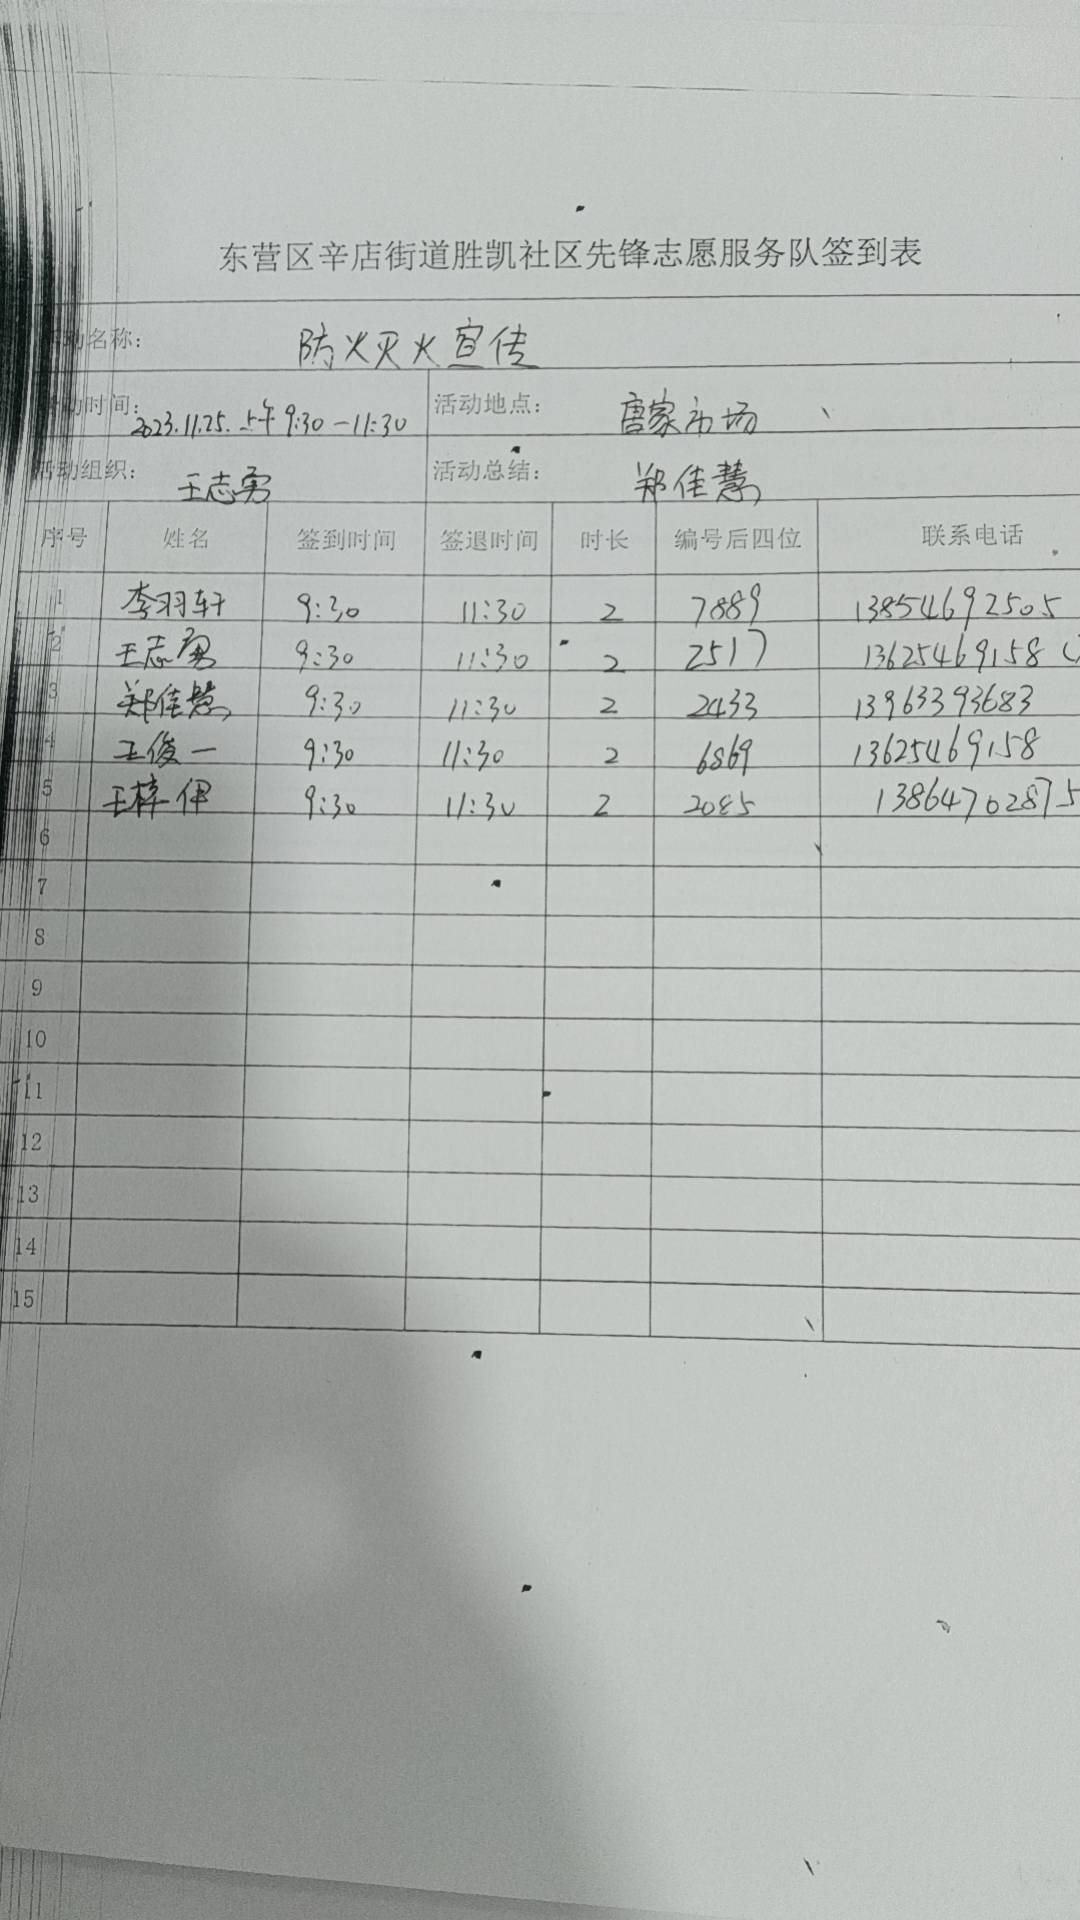 东营区辛店街道胜凯社区先锋志愿服务队签到表
活动名称： 防火灭火宣传
活动时间： 2023.11.25. 上午9:30-11:30 活动地点： 唐家市场
活动组织： 王志勇 活动总结： 郑佳慧
序号 姓名 签到时间 签退时间 时长 编号后四位 联系电话
1 李羽轩 9:30 11:30 2 7889 13854692505
2 王志勇 9:30 11:30 2 2517 13625469158
3 郑佳慧 9:30 11:30 2 2433 13963393683
4 王俊一 9:30 11:30 2 6869 13625469158
5 王梓伊 9:30 11:30 2 2085 13864762875
6
7
8
9
10
11
12
13
14
15